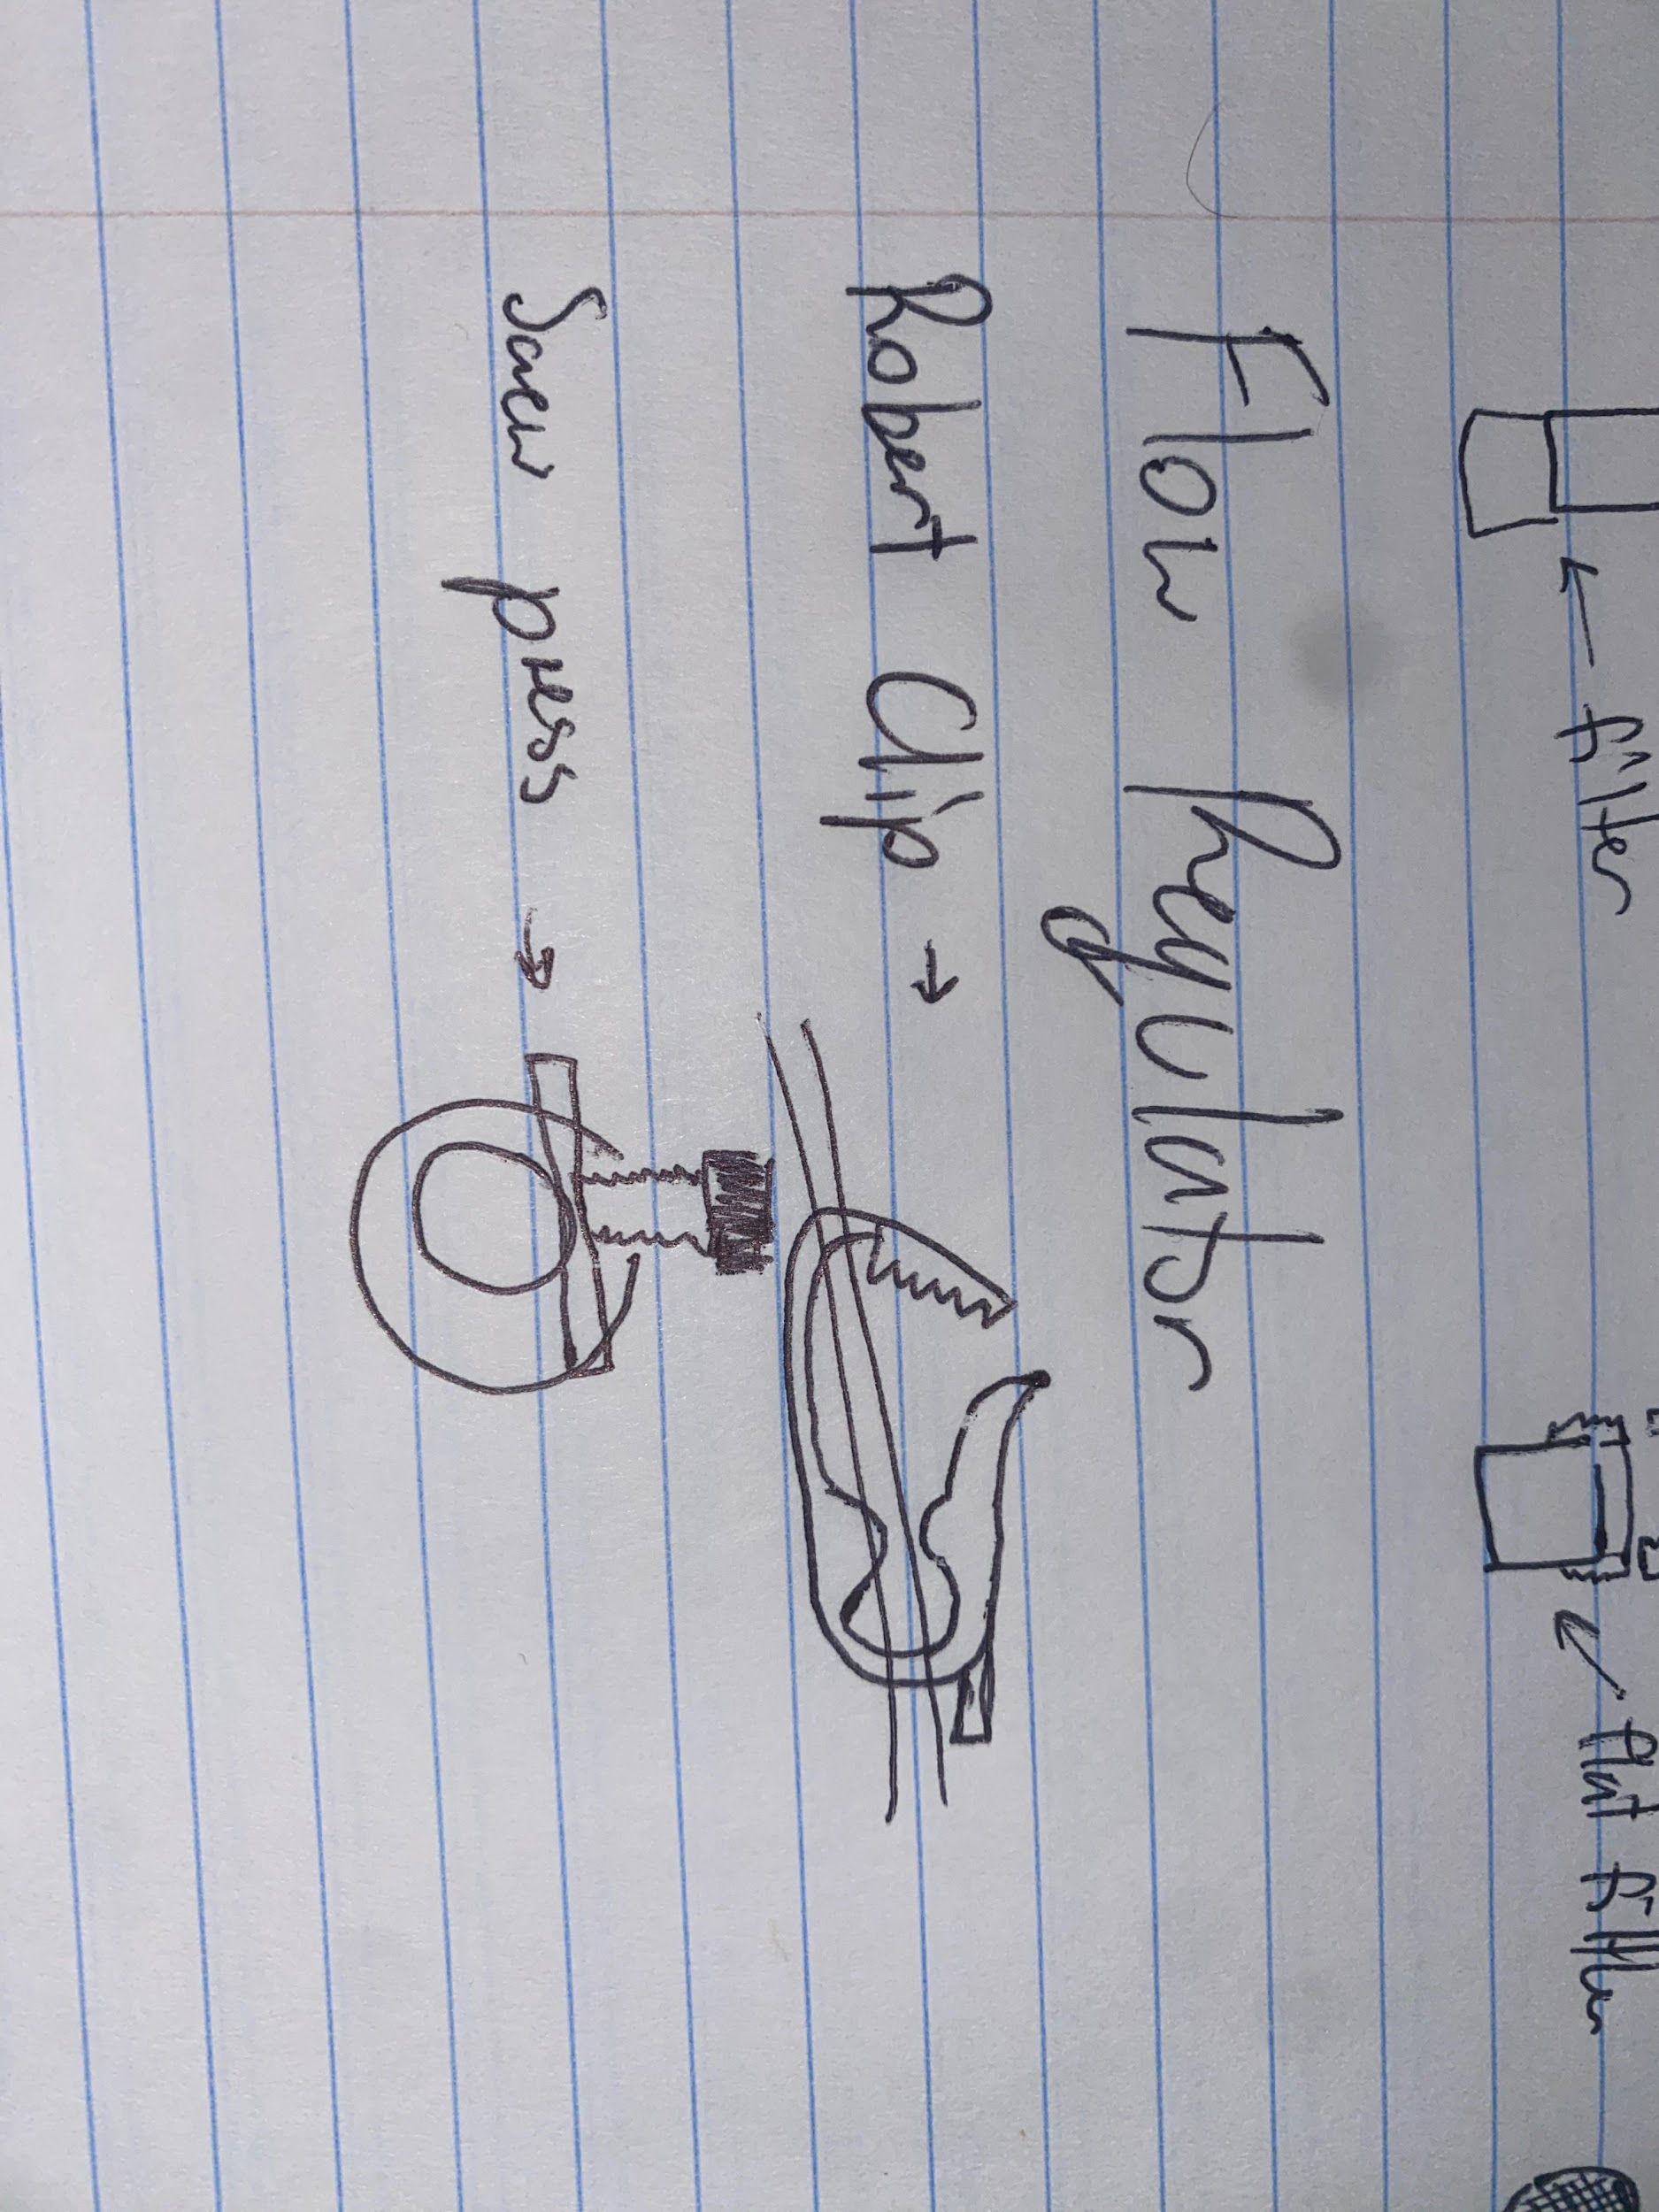 ← filter
← flat filter
Flow Regulator
Robert Clip →
Screw press →